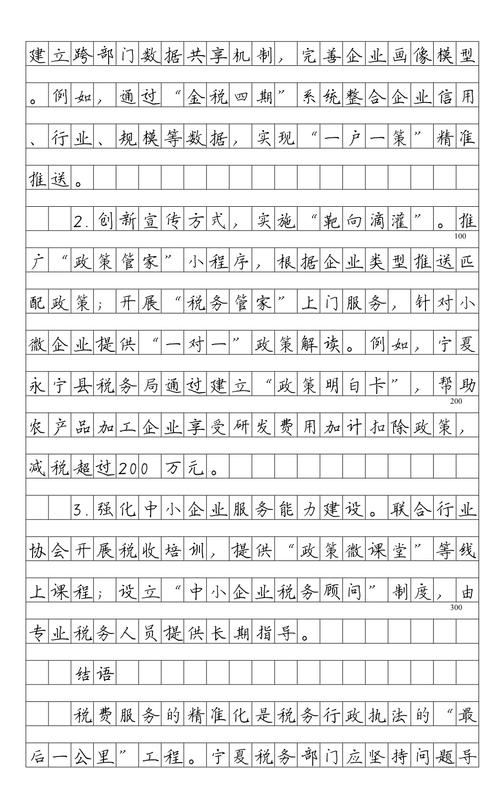 建立跨部门数据共享机制，完善企业画像模型
。例如，通过“金税四期”系统整合企业信用
、行业、规模等数据，实现“一户一策”精准
推送。
2.创新宣传方式，实施“靶向滴灌”。推
100
广“政策管家”小程序，根据企业类型推送匹
配政策；开展“税务管家”上门服务，针对小
微企业提供“一对一”政策解读。例如，宁夏
永宁县税务局通过建立“政策明白卡”，帮助
200
农产品加工企业享受研发费用加计扣除政策，
减税超过200 万元。
3.强化中小企业服务能力建设。联合行业
协会开展税收培训，提供“政策微课堂”等线
上课程；设立“中小企业税务顾问”制度，由
300
专业税务人员提供长期指导。
结语
税费服务的精准化是税务行政执法的“最
后一公里”工程。宁夏税务部门应坚持问题导